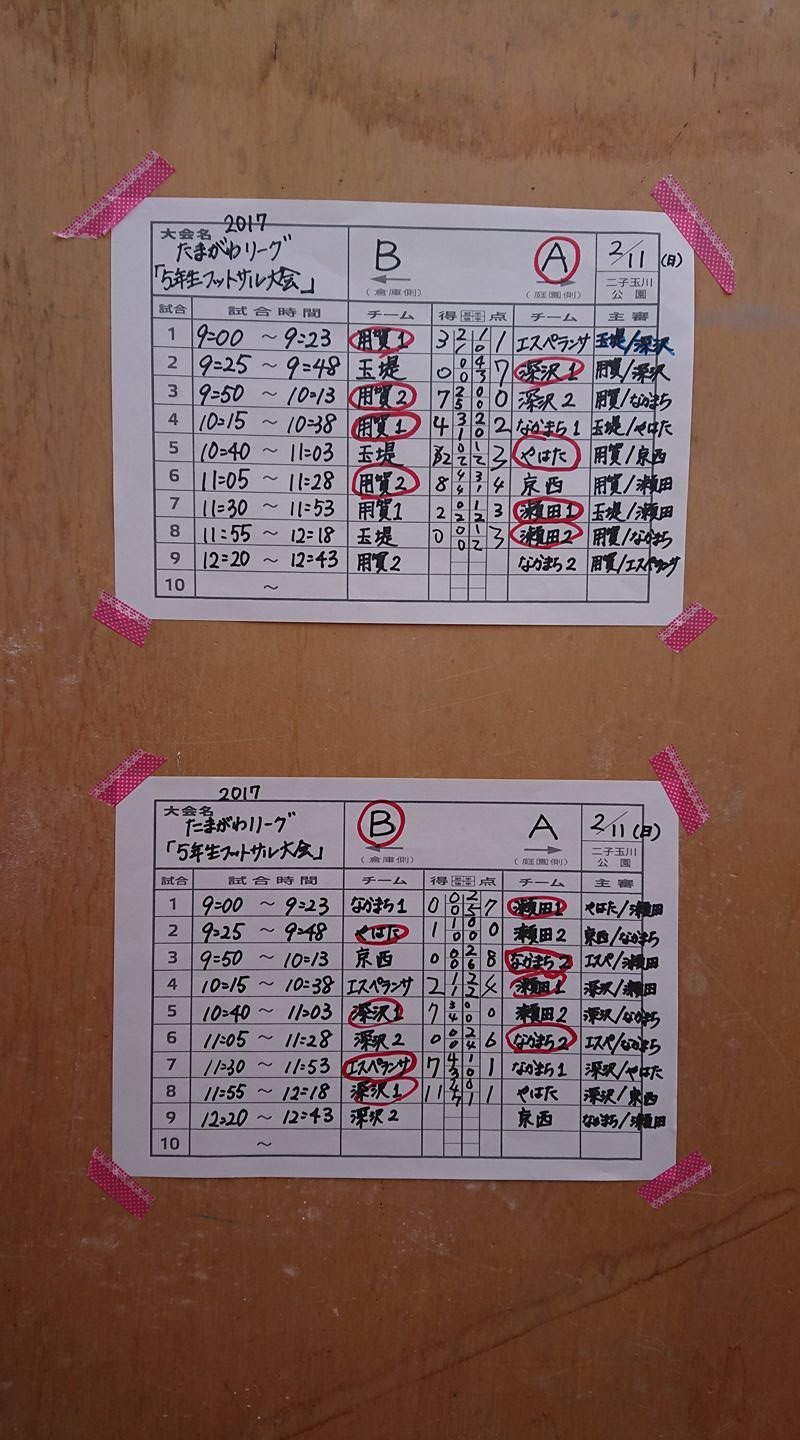 2017
大会名
たまがわリーグ
「5年生フットサル大会」
B
(倉庫側)
A
(庭園側)
2/11 (日)
二子玉川
公園
試合 試合時間 チーム 得 点 チーム 主審
1 9:00 ～ 9:23 用賀1 3 2 1 1 1 0 エスペランサ 玉堤/深沢
2 9:25 ～ 9:48 玉堤 0 0 4 7 0 3 深沢1 用賀/深沢
3 9:50 ～ 10:13 用賀2 7 2 0 0 5 0 深沢2 用賀/なかまち
4 10:15 ～ 10:38 用賀1 4 3 2 2 1 0 なかまち1 玉堤/やはた
5 10:40 ～ 11:03 玉堤 2 0 1 3 2 2 やはた 用賀/京西
6 11:05 ～ 11:28 用賀2 8 4 3 4 4 1 京西 用賀/瀬田
7 11:30 ～ 11:53 用賀1 2 0 1 3 2 2 瀬田1 玉堤/瀬田
8 11:55 ～ 12:18 玉堤 0 0 1 3 0 2 瀬田2 用賀/なかまち
9 12:20 ～ 12:43 用賀2 なかまち2 用賀/エスペランサ
10 ～
2017
大会名
たまがわリーグ
「5年生フットサル大会」
B
(倉庫側)
A
(庭園側)
2/11 (日)
二子玉川
公園
試合 試合時間 チーム 得 点 チーム 主審
1 9:00 ～ 9:23 なかまち1 0 0 2 7 0 5 瀬田1 やはた/瀬田
2 9:25 ～ 9:48 やはた 1 1 0 0 0 0 瀬田2 京西/なかまち
3 9:50 ～ 10:13 京西 0 0 2 8 0 6 なかまち2 エスペ/瀬田
4 10:15 ～ 10:38 エスペランサ 2 1 2 4 1 2 瀬田1 深沢/瀬田
5 10:40 ～ 11:03 深沢1 7 3 0 0 4 0 瀬田2 深沢/なかまち
6 11:05 ～ 11:28 深沢2 0 0 2 6 0 4 なかまち2 エスペ/なかまち
7 11:30 ～ 11:53 エスペランサ 7 4 1 1 3 0 なかまち1 深沢/やはた
8 11:55 ～ 12:18 深沢1 11 4 0 1 7 1 やはた 深沢/京西
9 12:20 ～ 12:43 深沢2 京西 なかまち/瀬田
10 ～